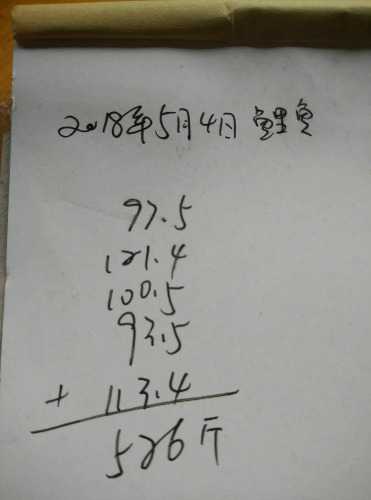 2018年5月4日 鲤鱼
97.5
121.4
100.5
93.5
+ 113.4
526斤